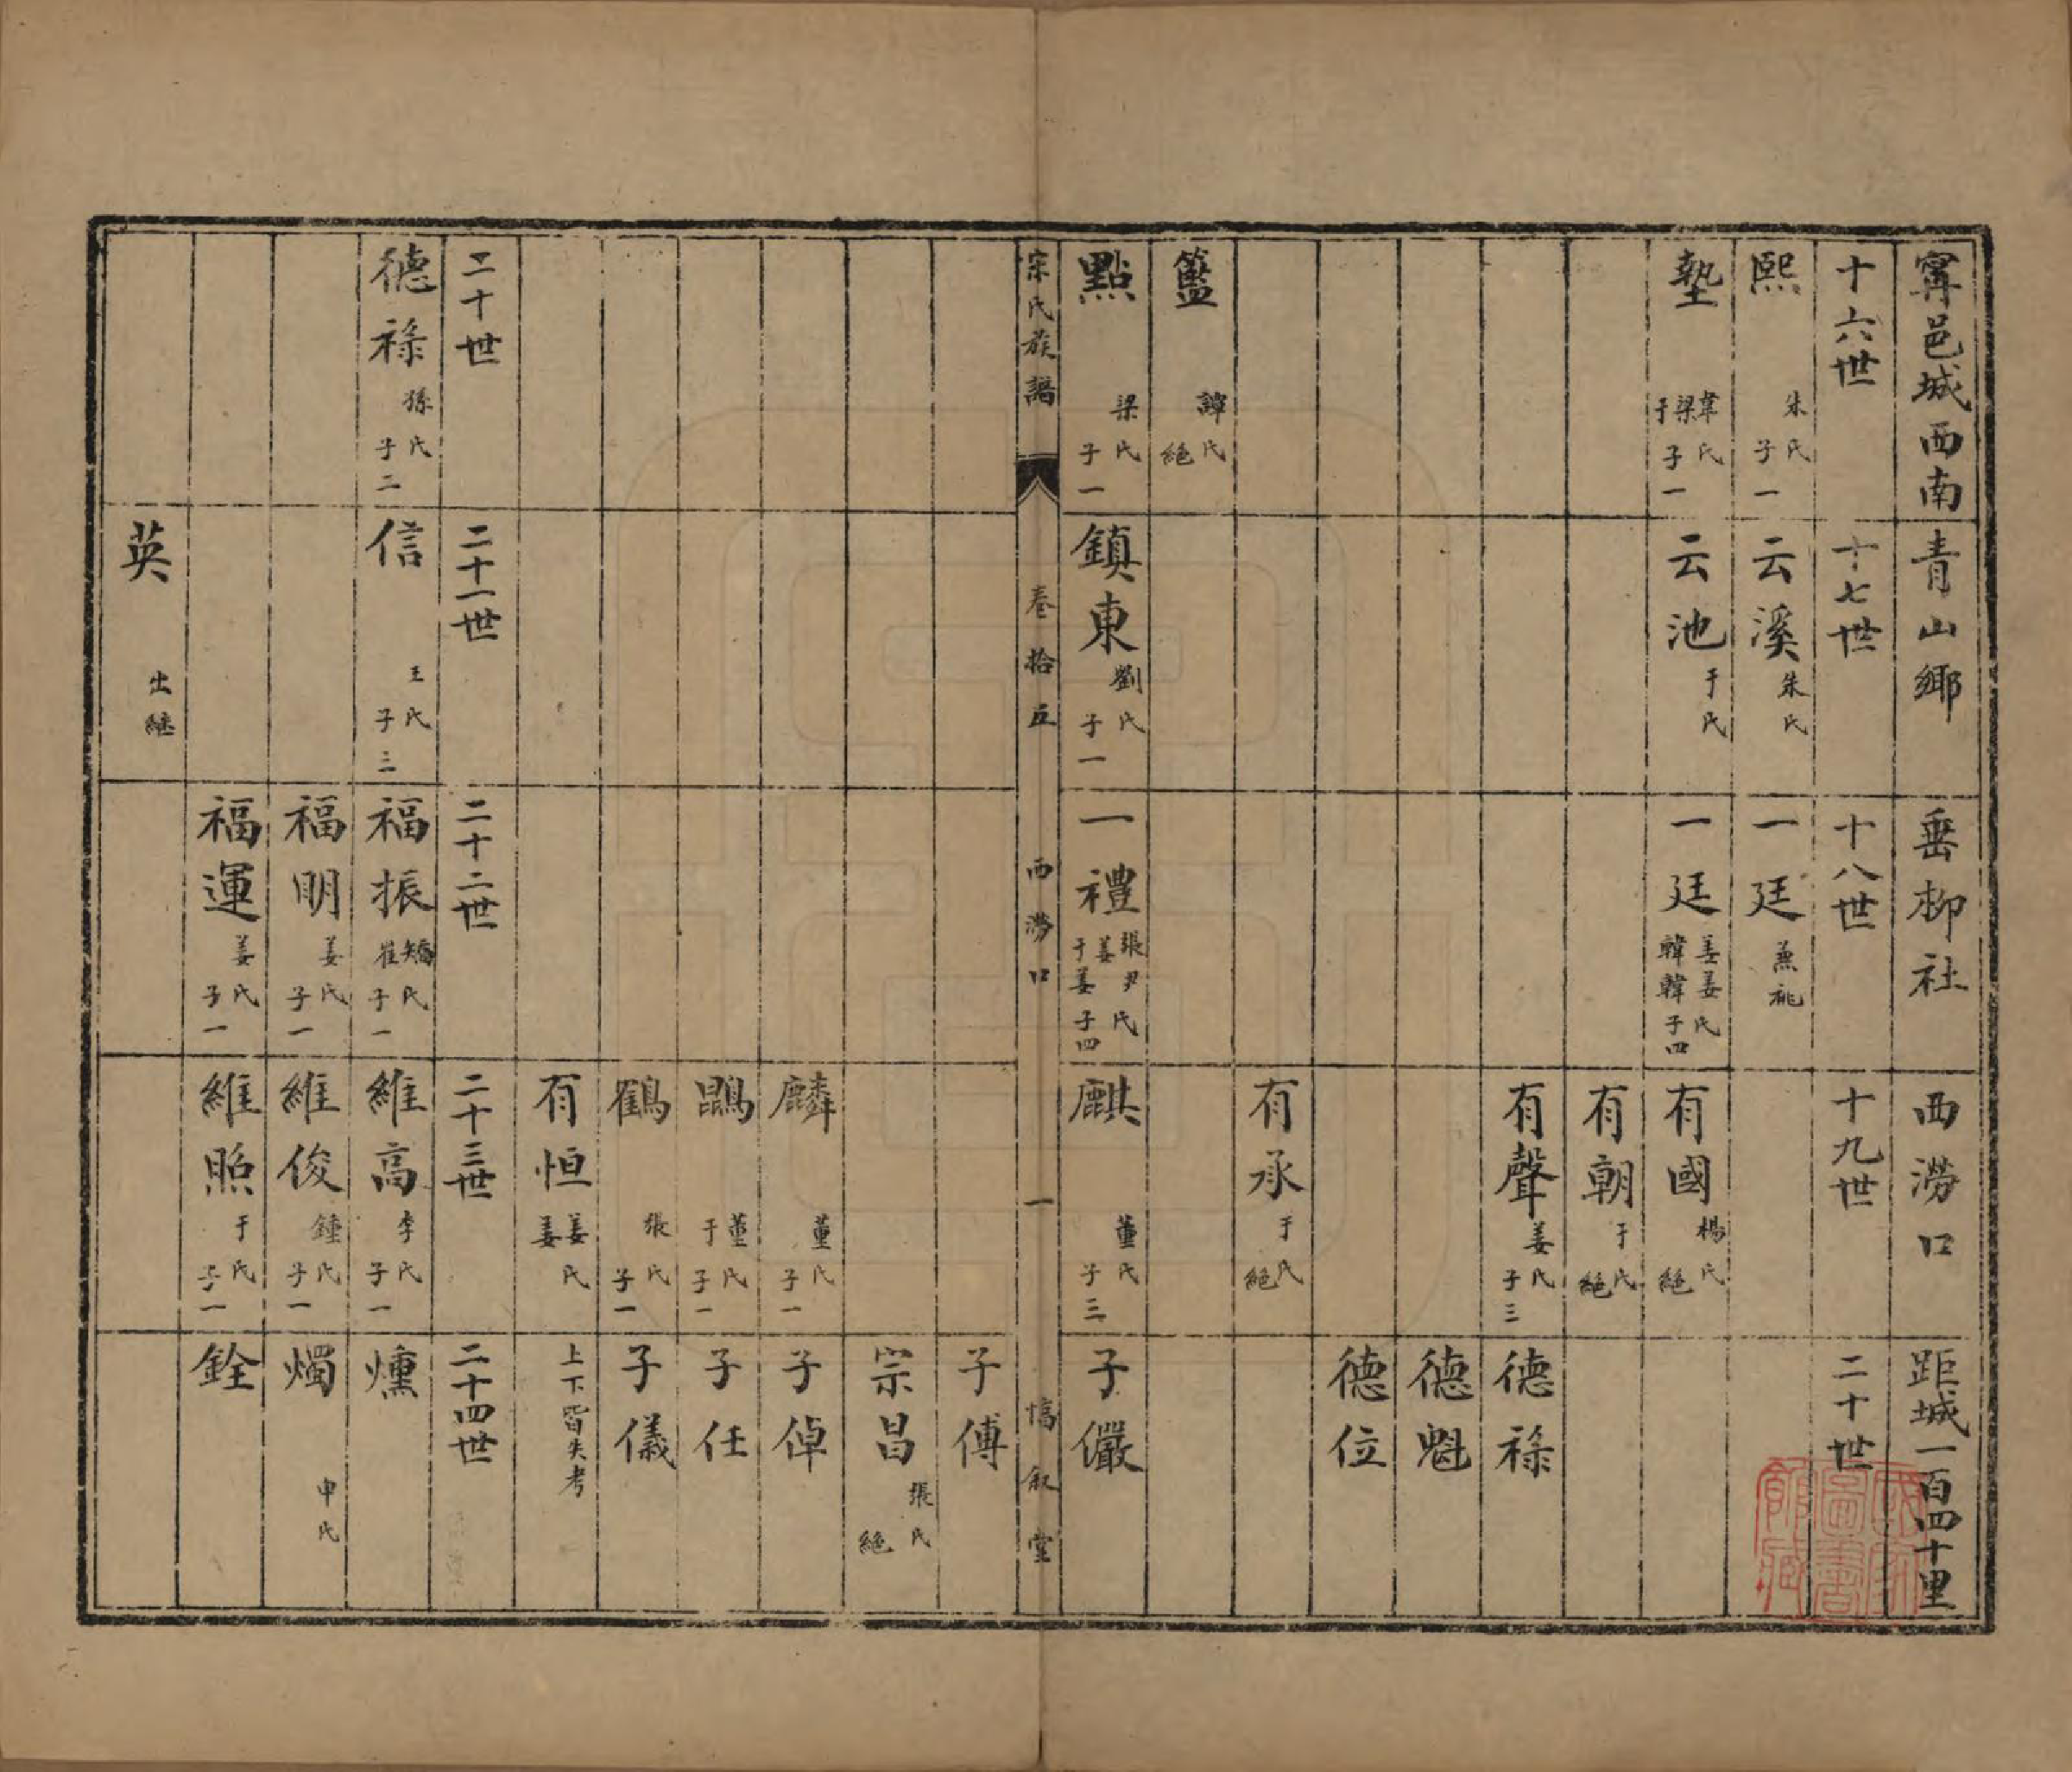 寗邑城西南青山鄉垂柳社西澇口距城一百四十里
十六世 十七世 十八世 十九世 二十世
熙 朱氏 子一 云溪 朱氏 一廷 兼祧
墊 韋梁于氏 子一 云池 于氏 一廷 姜姜韓韓氏 子四 有國 楊氏 絕
有朝 于氏 絕
有聲 姜氏 子三 德祿
德魁
德位
有承 于氏 絕
籃 譚氏 絕
點 梁氏 子一 鎮東 劉氏 子一 一禮 張尹姜于姜氏 子四 麒 董氏 子三 子儼
宗氏族譜 卷拾五 西澇口 一 惇叙堂
子傅
宗昌 張氏 絕
麟 董氏 子一 子倬
鵾 董于氏 子一 子任
鶴 張氏 子一 子儀
有恒 姜姜氏 上下皆失考
二十世 二十一世 二十二世 二十三世 二十四世
德祿 孫氏 子二 信 王氏 子三 福振 矯崔氏 子一 維高 李氏 子一 燻
福明 姜氏 子一 維俊 鍾氏 子一 燭 申氏
福運 姜氏 子一 維照 于氏 子一 銓
英 出繼